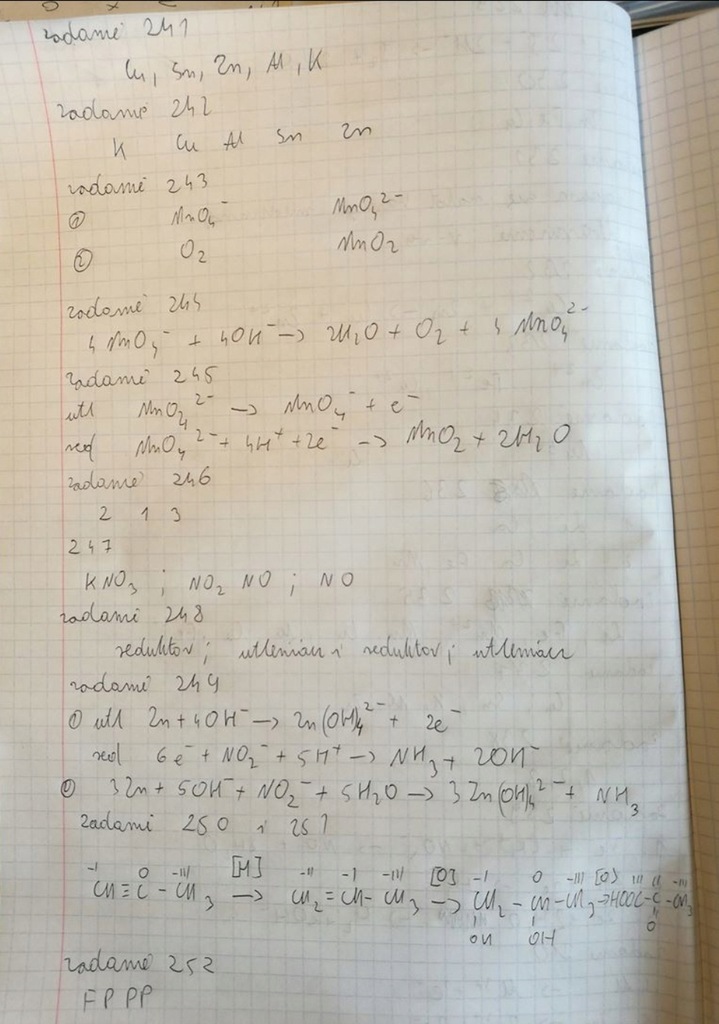 zadanie 241
Cu, Sn, Zn, Al, K
zadanie 242
K Cu Al Sn Zn
zadanie 243
① MnO₄⁻ MnO₄²⁻
② O₂ MnO₂
zadanie 244
4 MnO₄⁻ + 4OH⁻ → 2H₂O + O₂ + 4 MnO₄²⁻
zadanie 245
utl MnO₄²⁻ → MnO₄⁻ + e⁻
red MnO₄²⁻ + 4H⁺ + 2e⁻ → MnO₂ + 2H₂O
zadanie 246
2 1 3
247
KNO₃ ; NO₂ NO ; NO
zadanie 248
reduktor; utleniacz i reduktor; utleniacz
zadanie 249
① utl Zn + 4OH⁻ → Zn(OH)₄²⁻ + 2e⁻
red 6e⁻ + NO₂⁻ + 5H⁺ → NH₃ + 2OH⁻
② 3Zn + 5OH⁻ + NO₂⁻ + 5H₂O → 3Zn(OH)₄²⁻ + NH₃
zadanie 250 i 251
-I 0 -III [H] -II -I -III [O] -I 0 -III [O] III II -III
CH ≡ C - CH₃ → CH₂ = CH - CH₃ → CH₂ - CH - CH₃ → HOOC - C - CH₃
OH OH O
zadanie 252
F P P P